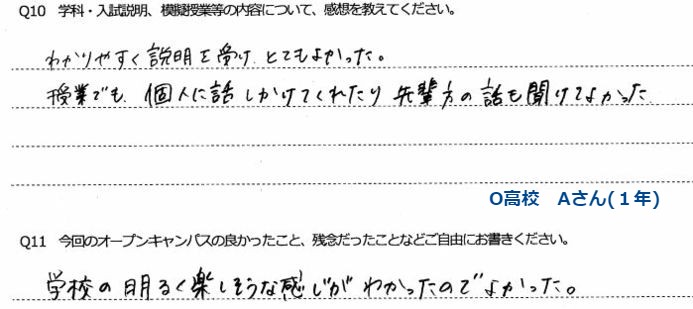 Q10　学科・入試説明、模擬授業等の内容について、感想を教えてください。
わかりやすく説明を受け、とてもよかった。
授業でも、個人に話しかけてくれたり 先輩方の話も聞けてよかった
O高校　Aさん(１年)
Q11　今回のオープンキャンパスの良かったこと、残念だったことなどご自由にお書きください。
学校の明るく楽しそうな感じがわかったのでよかった。